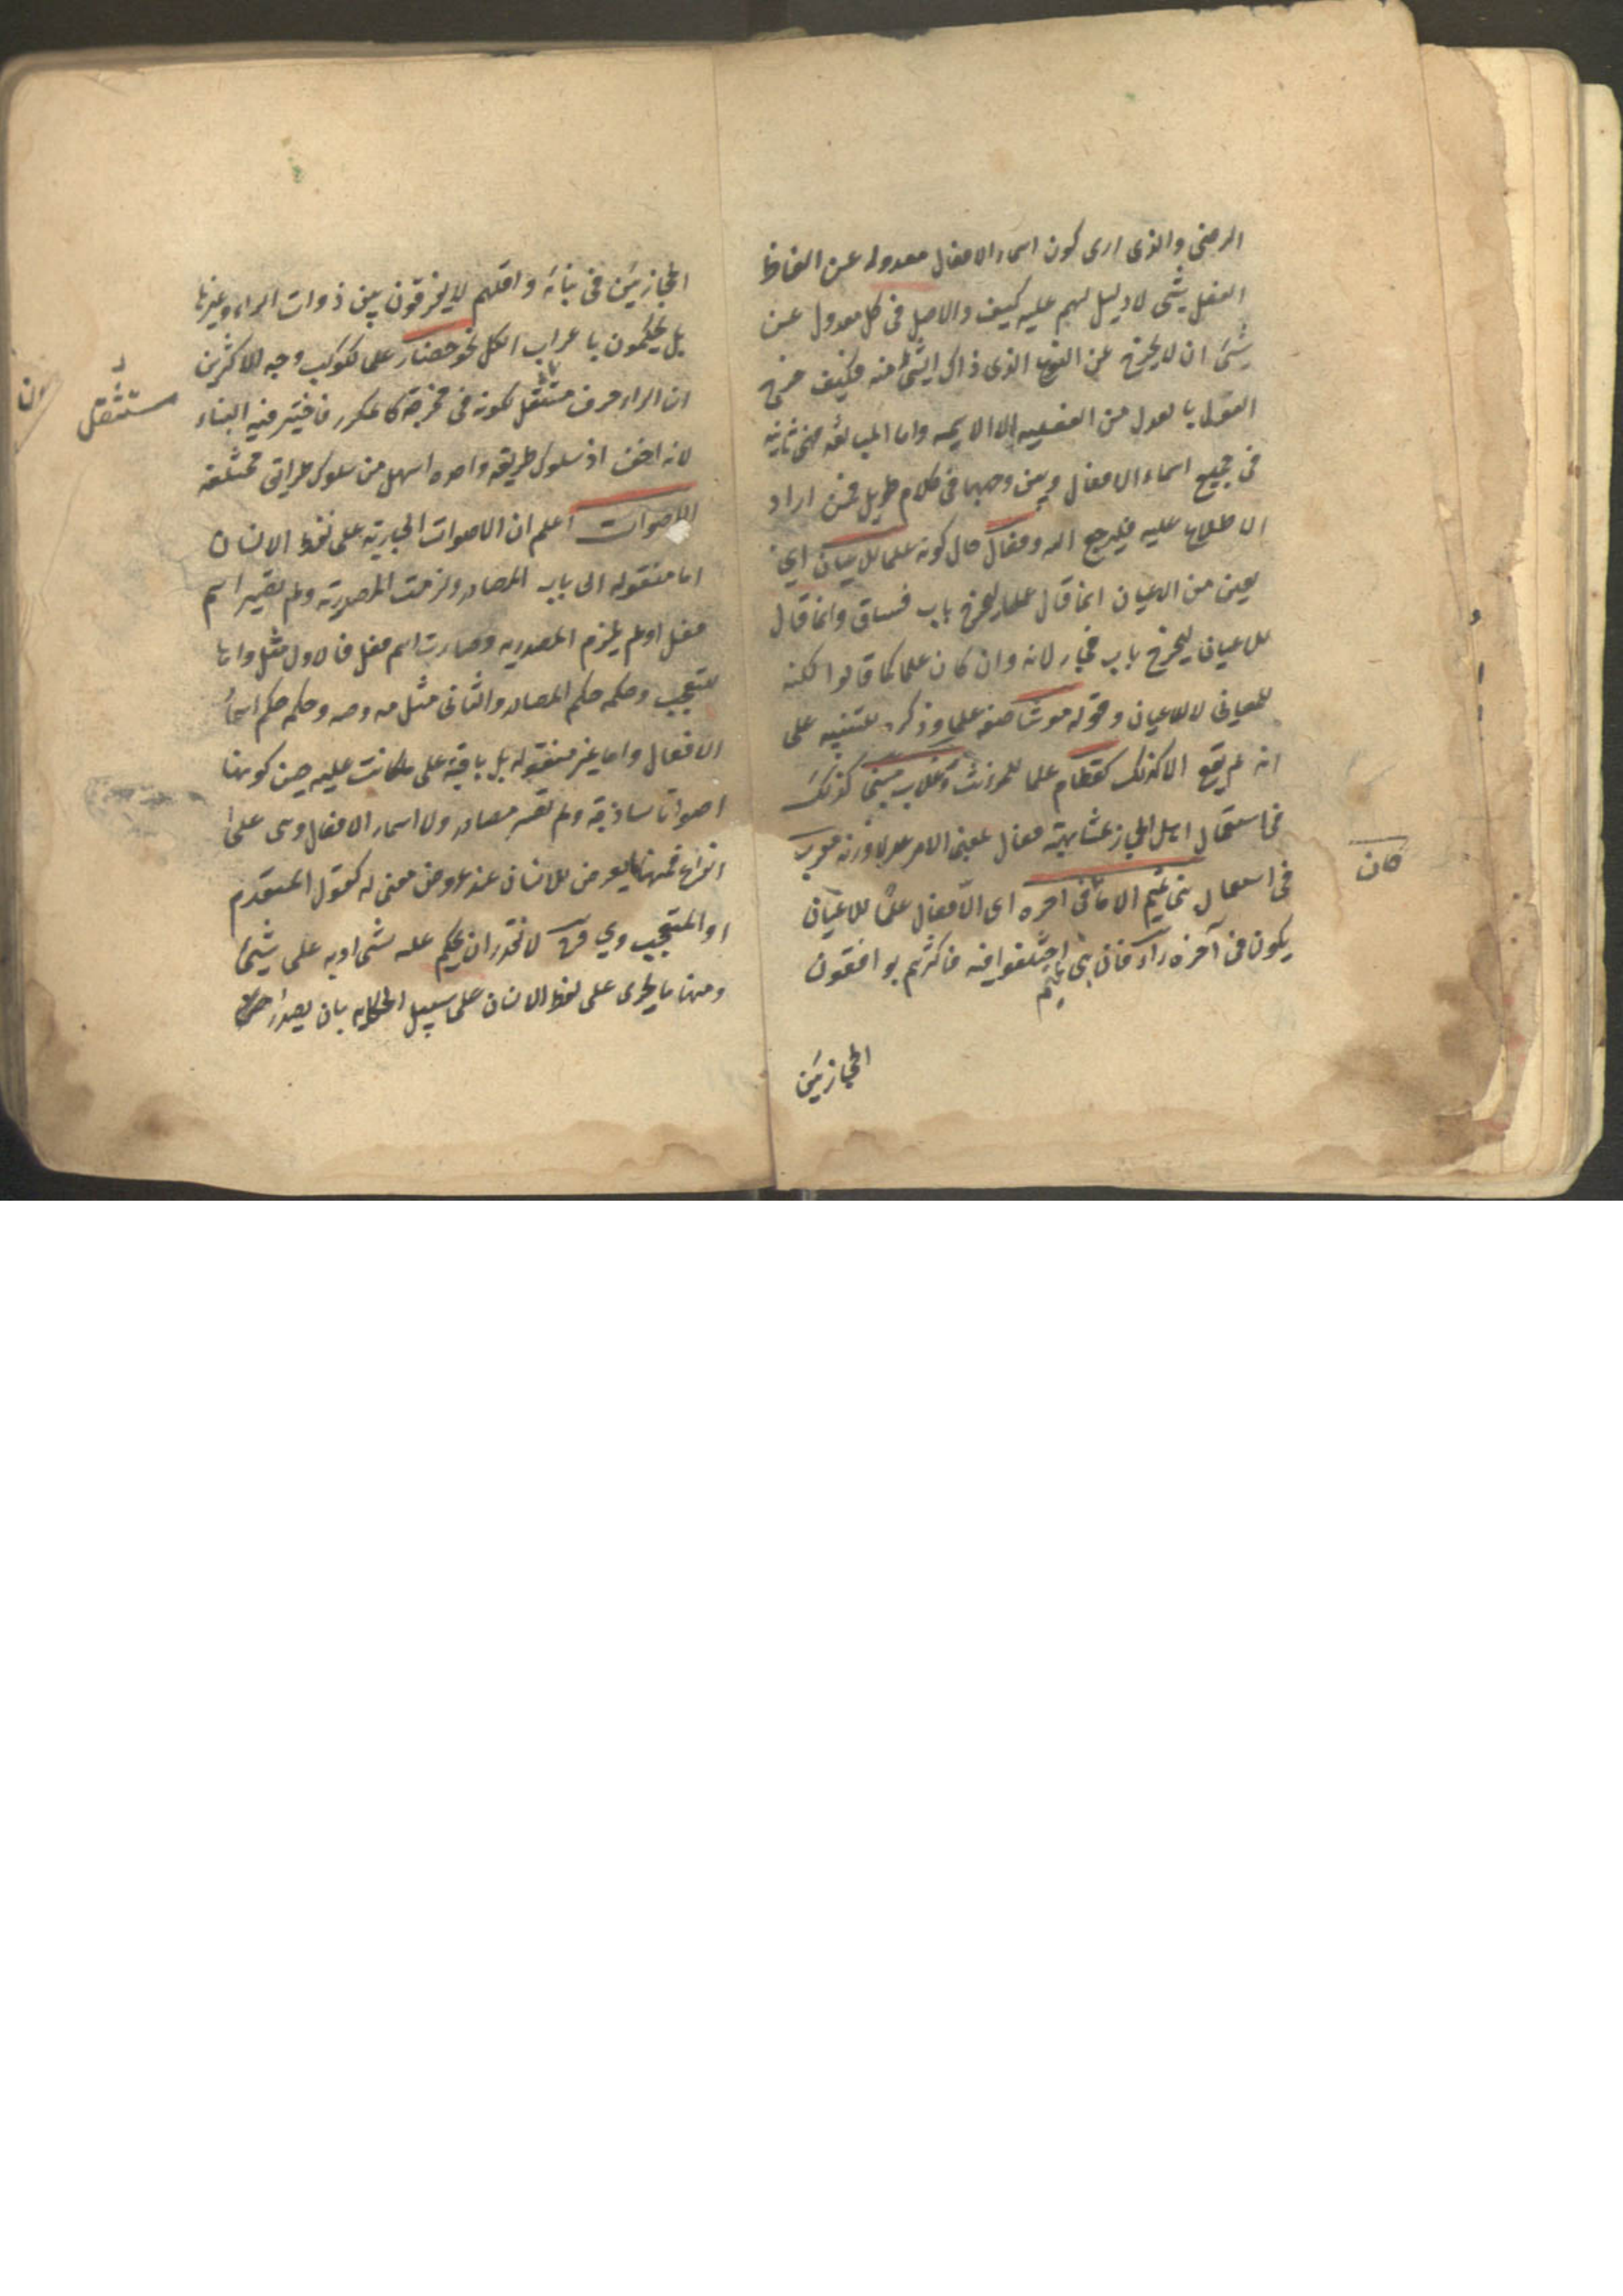 الرضى والذى ارى كون اسماء الافعال معدوله عن الفاظ
الفعل شئ لا دليل لهم عليه كيف والاصل فى كل معدول عن
شئ ان لا يخرج عن النوع الذى ذاك الشئ منه فكيف خرج
العدل بالعدل من الفعليه الى الاسميه واما المبالغه فهى ثابته
فى جميع اسماء الافعال وبين وجهها فى كلام طويل فمن اراد
الاطلاع عليه فليرجع اليه وفعال حال كونه علما للاعيان اى
لعين من الاعيان انما قال علما ليخرج باب فساق وانما قال
للاعيان ليخرج باب فجار لانه وان كان علما كما قالوا لكنه
للمعانى لا للاعيان وقوله مونثا صفه علما وذكره للتنبيه على
انه لم يقع الا كذلك كقطام علما للمؤنث وغلاب مبنى كذلك
فى استعمال اهل الحجاز لمشابهته فعال بمعنى الامر عدلا وزنه معرب
فى استعمال بنى تميم الا ما فى آخره اى الا فعال علما للاعيان
يكون فى آخره راء فان بنى تميم اختلفوا فيه فاكثرهم يوافقون
الحجازيين
كان
الحجازيين فى بنائه واقلهم لا يفرقون بين ذوات الراء وغيرها
بل يحكمون باعراب الكل نحو حضار علما لكوكب وجه الاكثرين
ان الراء حرف مستثقل لكونه فى مخرجه كالمكرر فاختير فيه البناء
لانه اخف اذ سلوك طريقه واحده اسهل من سلوك طرائق مختلفه
الاصوات اعلم ان الاصوات الجاريه على لفظ الانسان
اما منقوله الى باب المصادر ولزمت المصدريه ولم تصير اسم
فعل او لم يلزم المصدريه وصارت اسم فعل فالاول مثل واها
للتعجب وحكمه حكم المصادر والثانى مثل مه وصه وحكمه حكم اسماء
الافعال واما غير منقوله بل باقيه على ما كانت عليه حين كونها
اصواتا ساذجه ولم تصر مصادر ولا اسماء الافعال وهى على
انواع فمنها ما يعرض للانسان عند عروض معنى له كقول المتندم
او المتعجب وى فى لا تقدر ان يحكم عليه بشئ او به على شئ
ومنها ما يجرى على لفظ الانسان على سبيل الحكايه بان يصدر
مستثقل